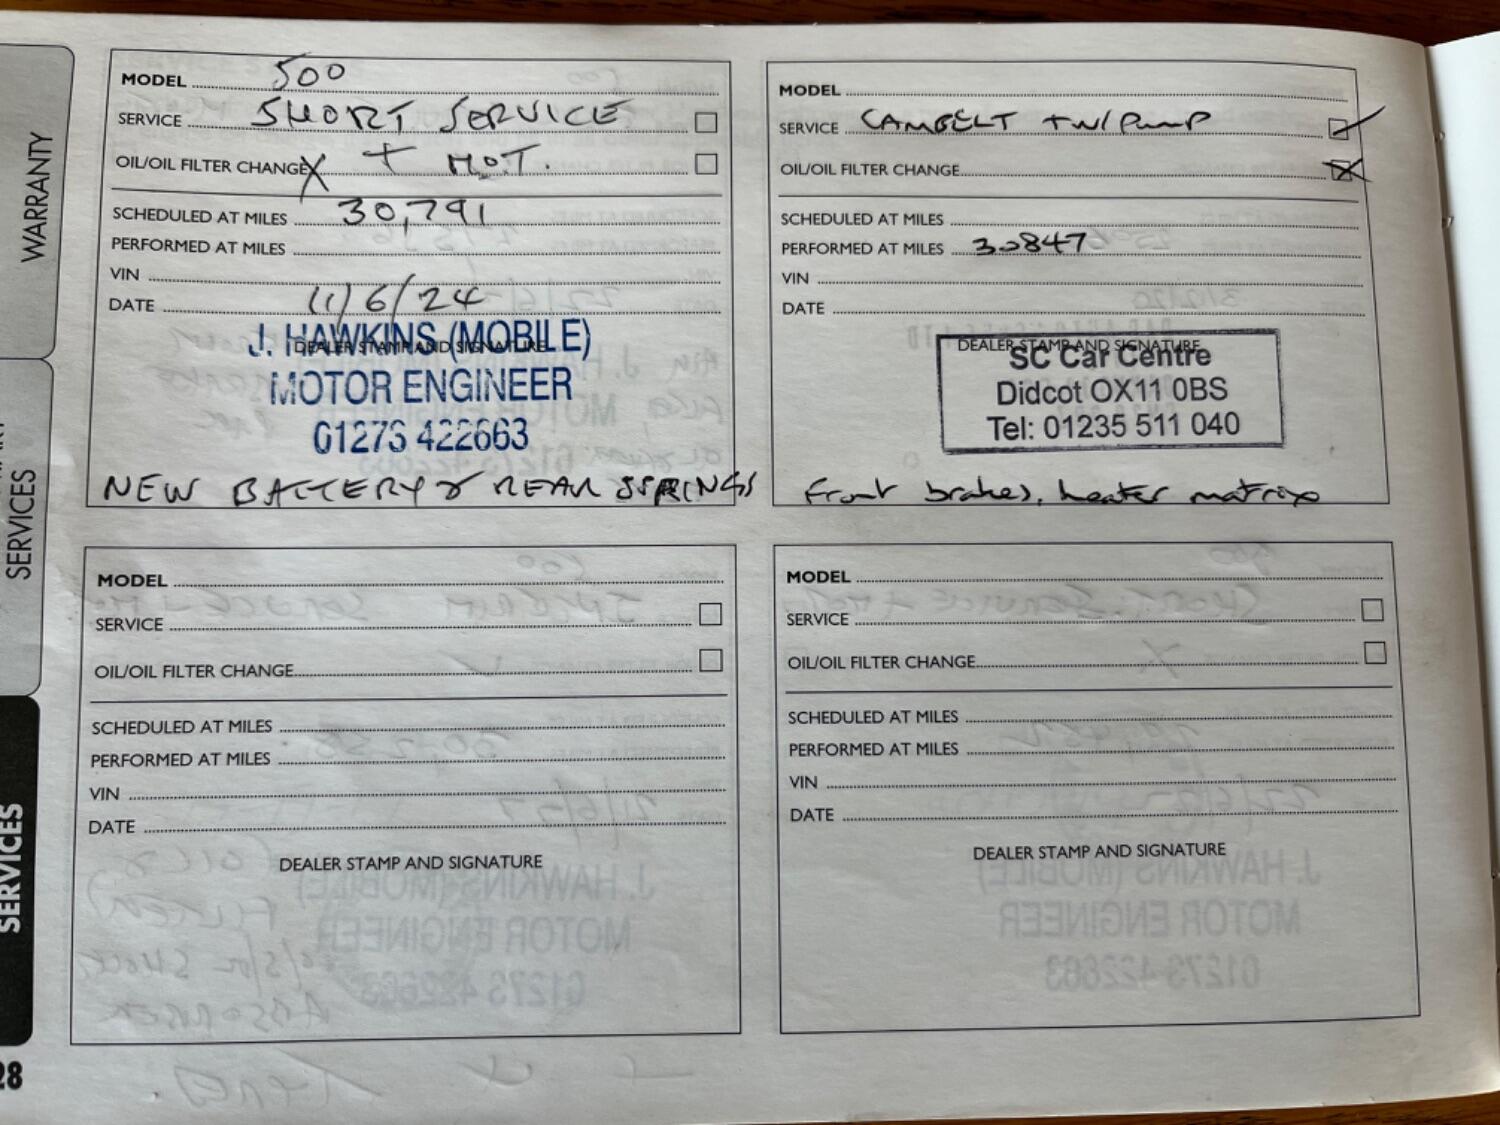 WARRANTY
SERVICES
SERVICES
28
MODEL 500
SERVICE SHORT SERVICE
OIL/OIL FILTER CHANGE X + MOT.
SCHEDULED AT MILES 30,791
PERFORMED AT MILES
VIN
DATE 11/6/24
DEALER STAMP AND SIGNATURE
J. HAWKINS (MOBILE)
MOTOR ENGINEER
01273 422663
NEW BATTERY & REAR SPRINGS
MODEL
SERVICE CAMBELT + W/Pump
OIL/OIL FILTER CHANGE
SCHEDULED AT MILES
PERFORMED AT MILES 30847
VIN
DATE
DEALER STAMP AND SIGNATURE
SC Car Centre
Didcot OX11 0BS
Tel: 01235 511 040
Front brakes, heater matrix
MODEL
SERVICE
OIL/OIL FILTER CHANGE
SCHEDULED AT MILES
PERFORMED AT MILES
VIN
DATE
DEALER STAMP AND SIGNATURE
MODEL
SERVICE
OIL/OIL FILTER CHANGE
SCHEDULED AT MILES
PERFORMED AT MILES
VIN
DATE
DEALER STAMP AND SIGNATURE